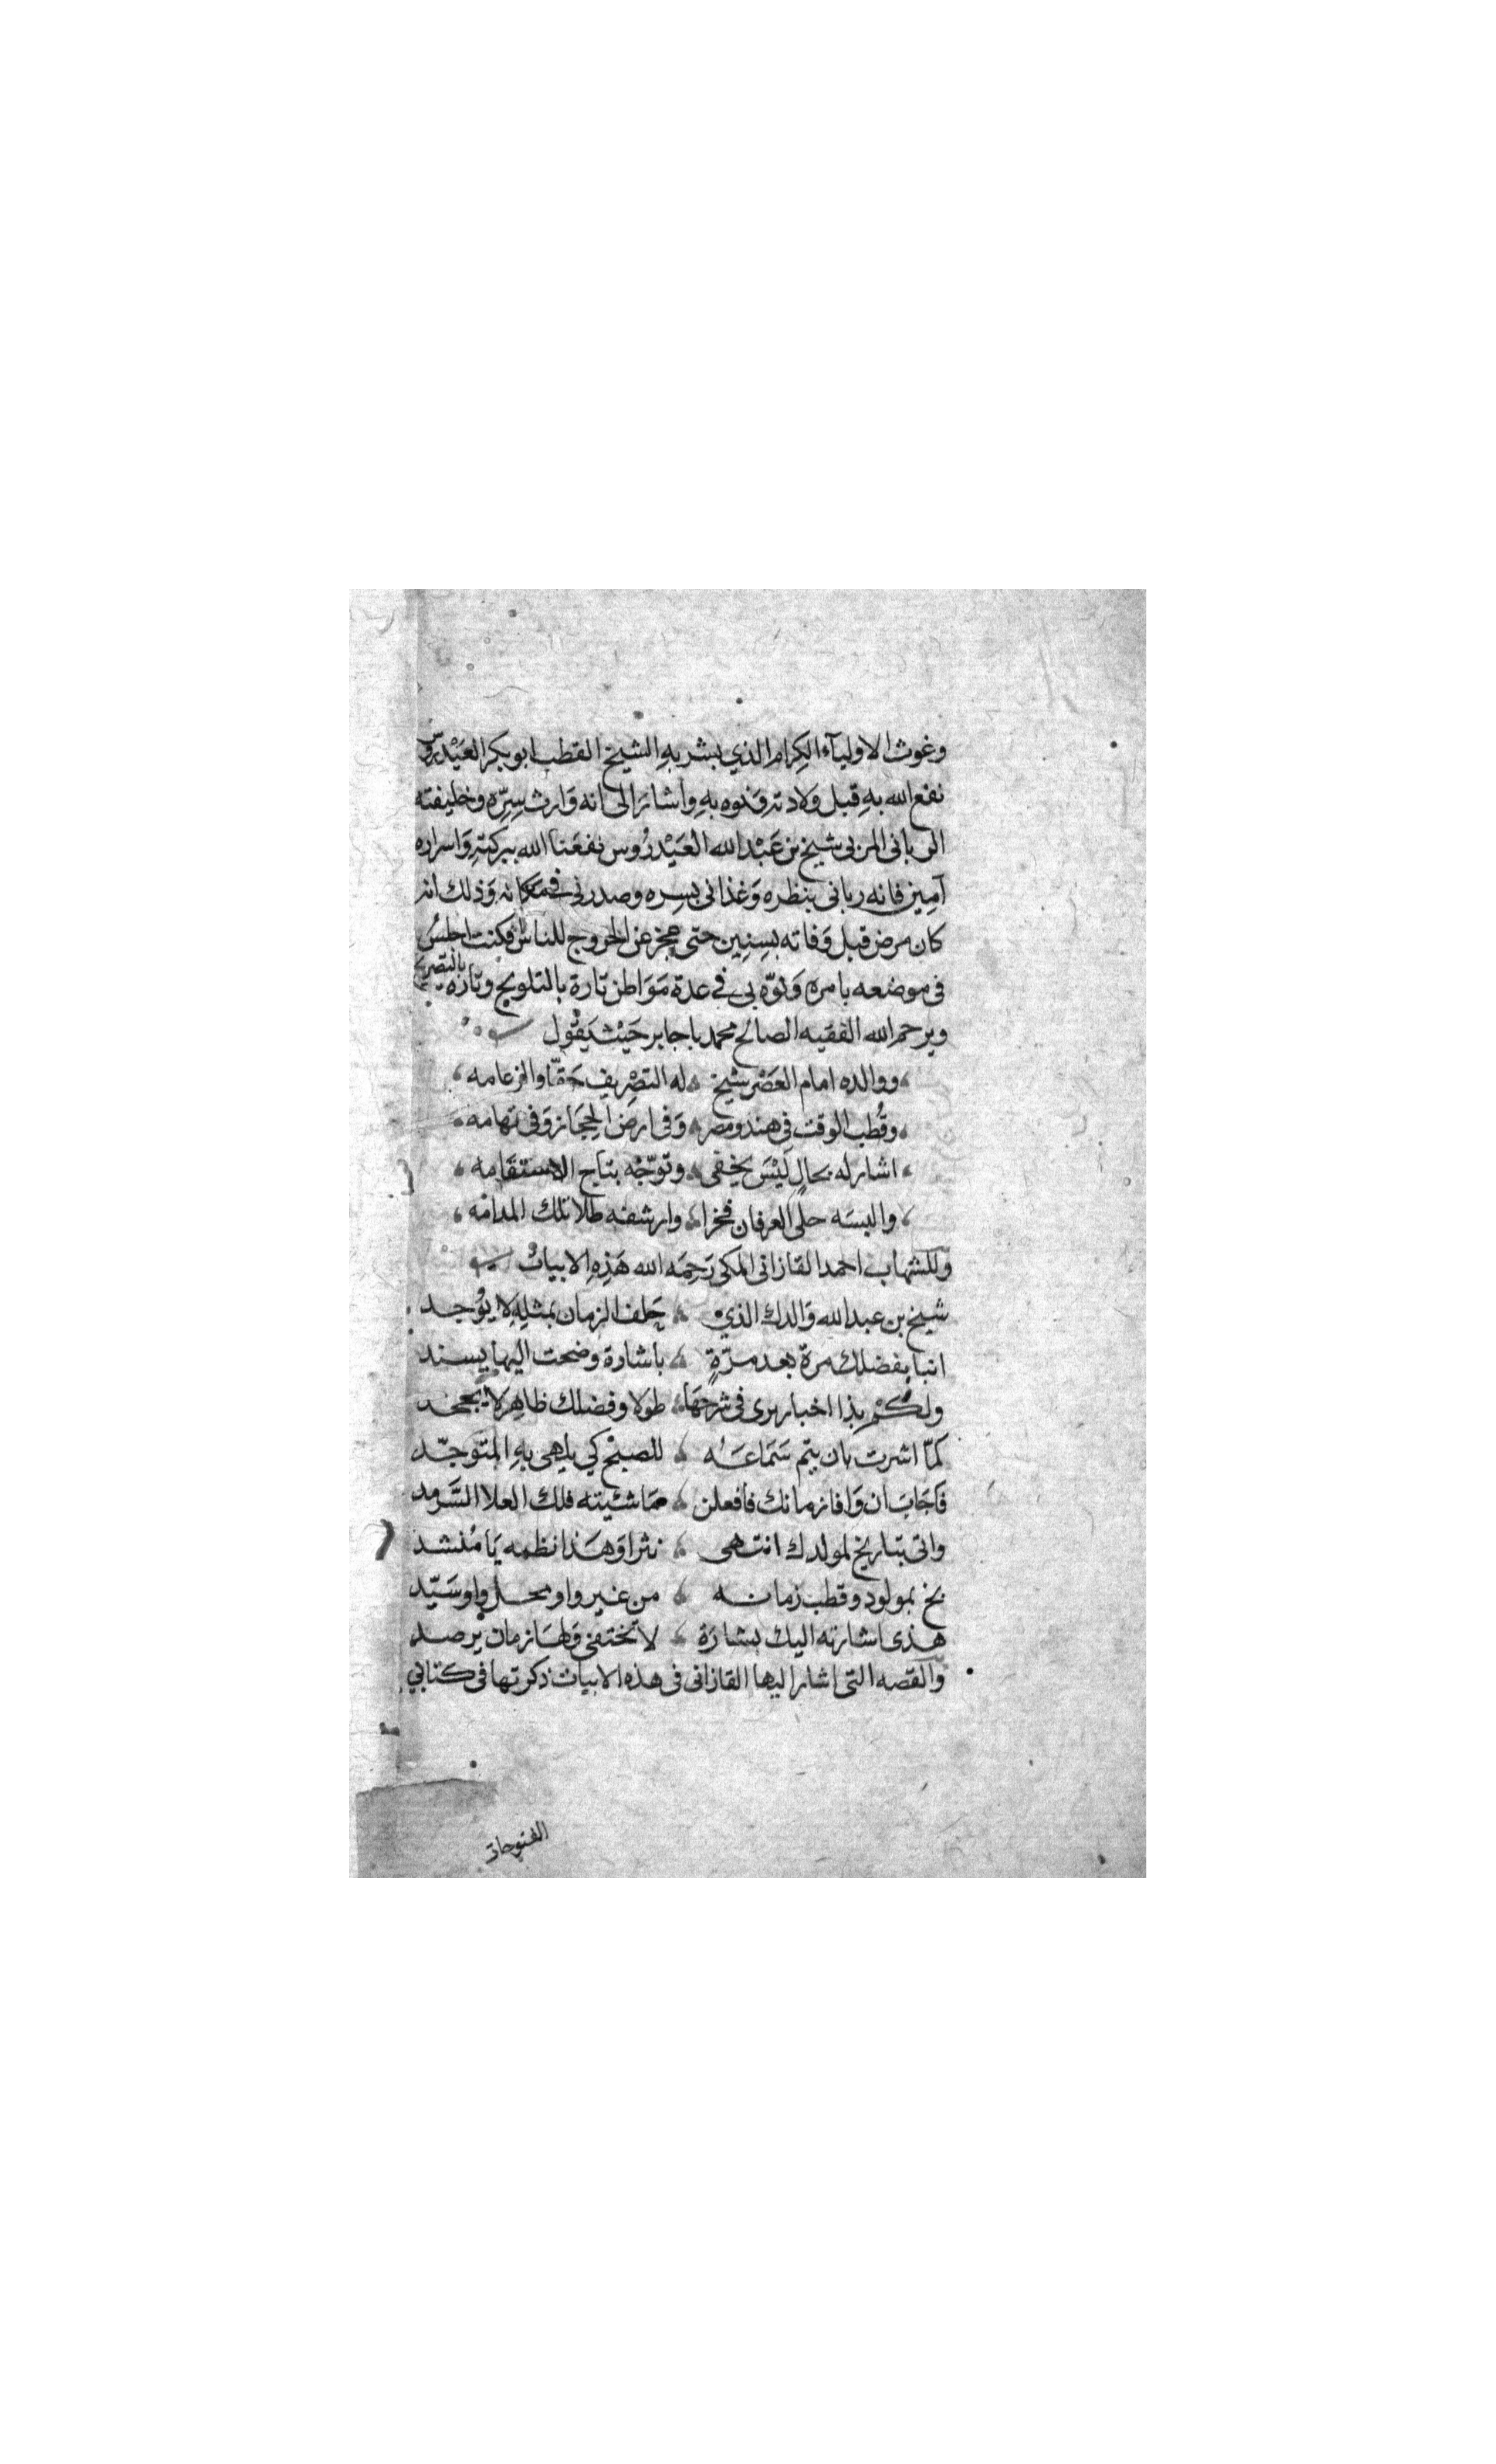 وغوث الاوليآء الكِرام الذي بشر بهِ الشيخ القطب ابو بكر العَيْدروس
نفع الله بهِ قبل ولادته ونوه بهِ وأشار الى انه وَارث سِرِّه وخليفته
الربانى المربى شيخ بن عَبْد الله العَيْدرُوس نفعَنا الله ببركتهِ وَاسراره
آمِين فانه ربانى بنظره وَغذانى بسِره وصدرنى فى مكانه وَذلك انه
كان مرض قبل وَفاته بسِنِين حتى عجز عن الخروج للناس فكنت اجلسُ
فى موضعه بامره وَنوّه بى فى عدة مَوَاطن تارة بالتلويح وتاره بالتصريح
ويرحم الله الفقيه الصالح محمد باجابر حَيْث يَقُول
ووالده امام العَصْر شيخ ؛ له التصْرِيف حَقّا والزعامه
وقُطب الوقت فِى هند ومصر ؛ وَفى ارض الحِجَاز وَفى تهامه
اشار له بحالٍ لَيْسَ يخفى ؛ وتوّجْه بتاج الاستقامه
والبسَه حلى العرفان فخرا ؛ وارشفه طلا تلك المدامه
وللشهاب احمد القازانى المكى رَحِمَه الله هَذِهِ الابيات
شيخ بن عبد الله وَالدك الذي ؛ حَلف الزمان بمثلِهِ لا يوُجد
انبا بفضلك مرة بعد مرّةٍ ؛ باشارة وضحت اليها يسند
ولكُمْ بذا اخبار يرى فى شرحَهَا ؛ طولا وفضلك ظاهِر لا يجحد
كمّا اشرت بان يتم سَمَاعَه ؛ للصبْح كي يلهى بهِ المتوجّد
فاجَابَ ان وَافا زمانك فافعلن ؛ مَا شئيته فلك العلا السَّرمد
واتى بتاريخ لمولدك انتهى ؛ نثرا وَهَذا نظمه يَا مُنشد
بخ بمولود وقطب زمانه ؛ من غير واو محل واو سَيّد
هذى اشارته اليك بشارَة ؛ لا تختفى وَلهَا زمان يرصد
وَالقصه التى اشار اليها القازانى فى هذه الابيات ذكرتها فى كتابي
الفتوحات